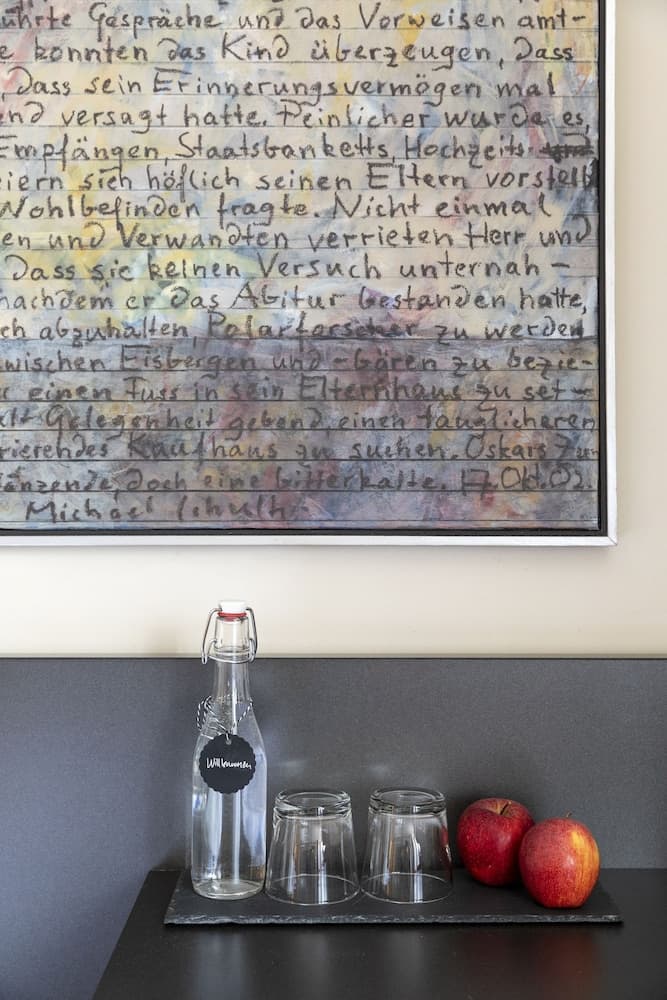 ührte Gespräche und das Vorweisen amt-
e konnten das Kind überzeugen, dass
, dass sein Erinnerungsvermögen mal
end versagt hatte. Peinlicher wurde es,
Empfängen, Staatsbanketts, Hochzeits
eiern sich höflich seinen Eltern vorstellt
Wohlbefinden fragte. Nicht einmal
en und Verwandten verrieten Herr und
Dass sie keinen Versuch unternah-
nachdem er das Abitur bestanden hatte,
ch abzuhalten, Polarforscher zu werden
wischen Eisbergen und -bären zu bezie-
einen Fuss in sein Elternhaus zu set-
alt Gelegenheit gebend, einen tauglicheren
rierendes Kaufhaus zu suchen. Oskars
länzende, doch eine bitterkalte. 17. Okt. 02.
Michael Schulh
Willkommen